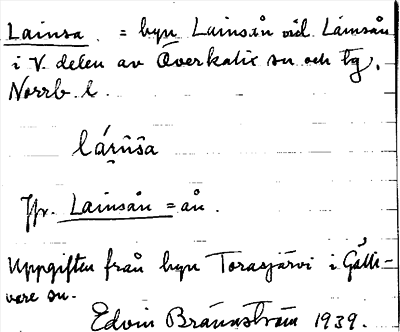 Lainsa = byn Lainsån vid Lainsån
i V. delen av Överkalix sn och tg,
Norrb. l.
Jfr. Lainsån = ån.
Uppgiften från byn Torasjärvi i Gälli-
vare sn.
Edvin Brännström 1939.